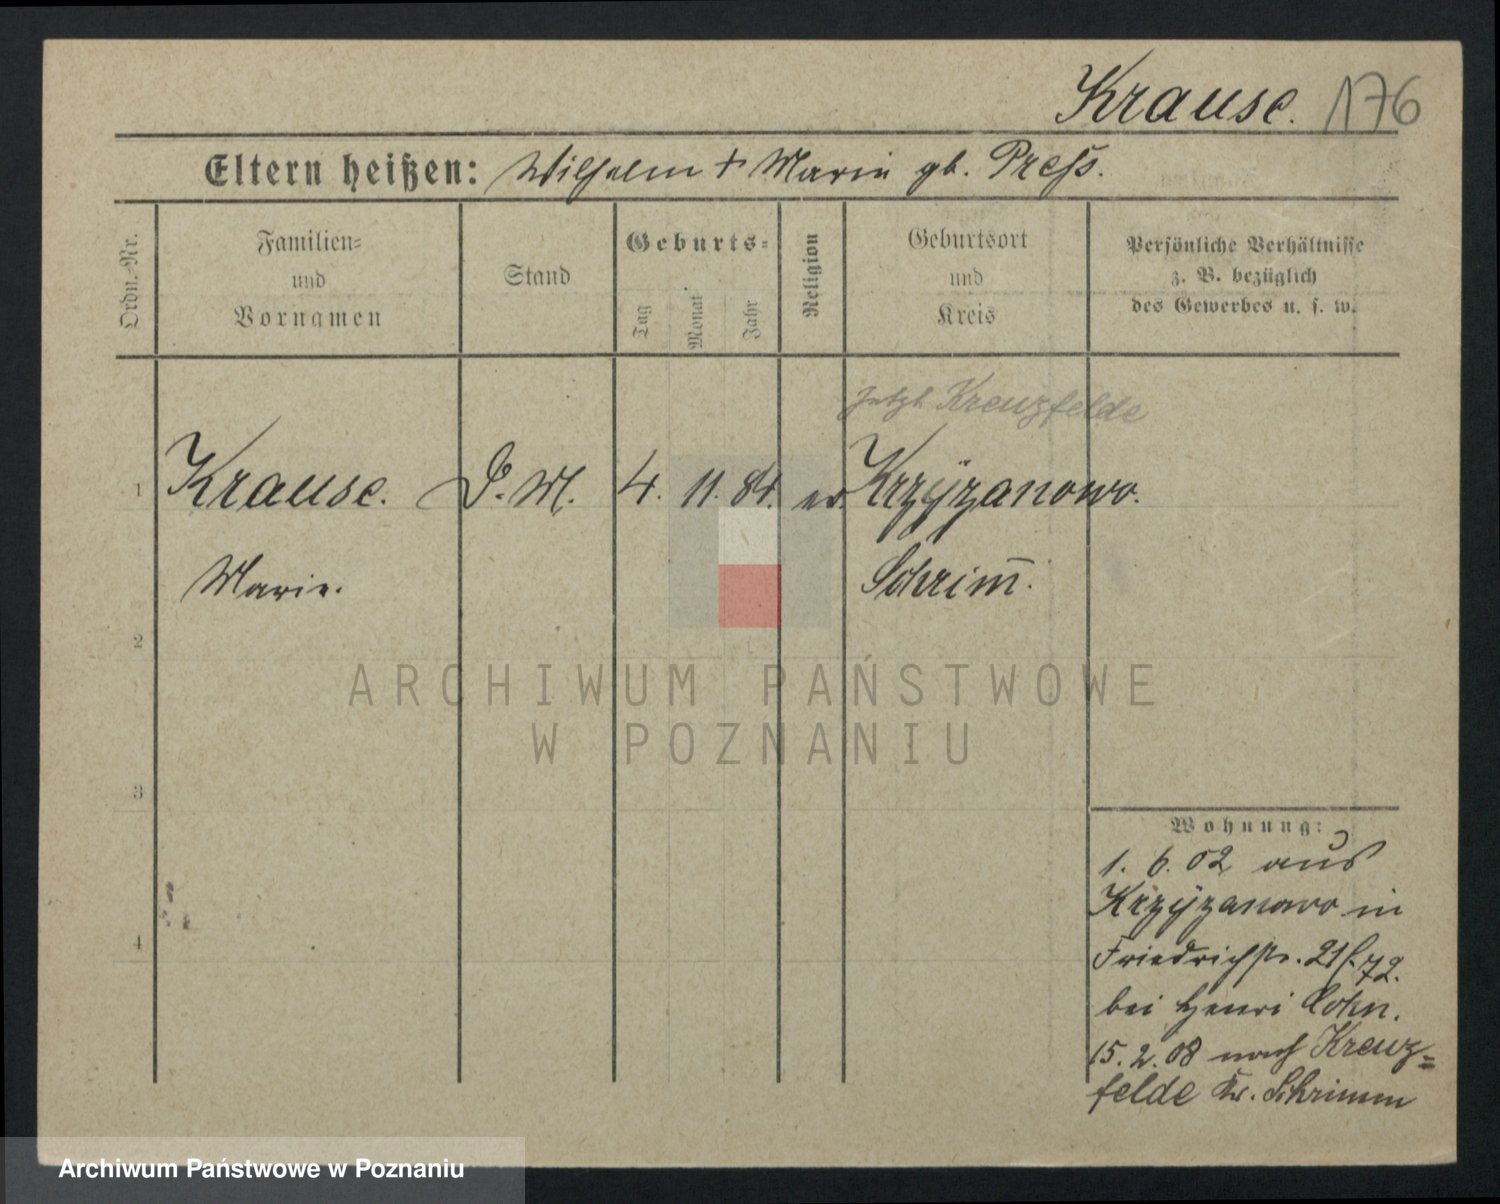 Krause. 176
Eltern heißen: Wilhelm + Marie gb. Preß.
Ordn.-Nr.
Familien-
und
Vornamen
Stand
Geburts-
Tag
Monat
Jahr
Religion
Geburtsort
und
Kreis
Persönliche Verhältnisse
z. B. bezüglich
des Gewerbes u. s. w.
jetzt Kreuzfelde
1 Krause. D. M. 4. 11. 84. ev. Krzyzanowo.
Marie. Schrim̅.
2
ARCHIWUM PAŃSTWOWE
W POZNANIU
3
4
Wohnung:
1. 6. 02 aus
Krzyzanowo in
Friedrichstr. 21/72.
bei Henri Cohn.
15. 2. 08 nach Kreuz=
felde Kr. Schrimm
Archiwum Państwowe w Poznaniu